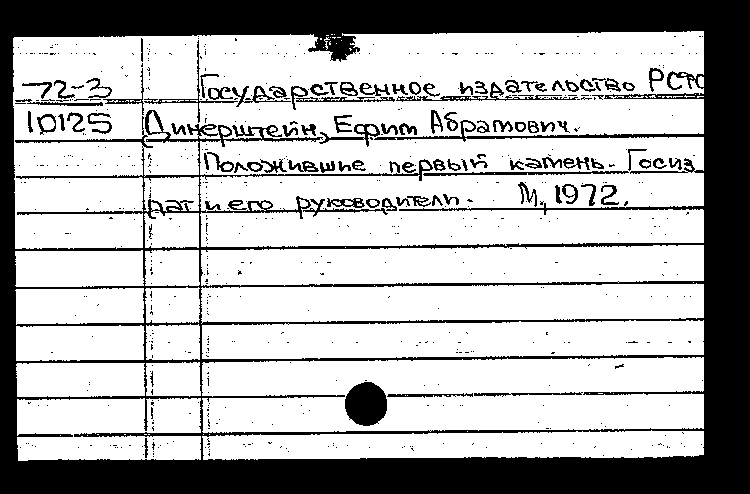 72-3 Государственное издательство РСФС
10125 Динерштейн, Ефим Абрамович.
Положившие первый камень. Госиз
дат и его руководители. М., 1972.